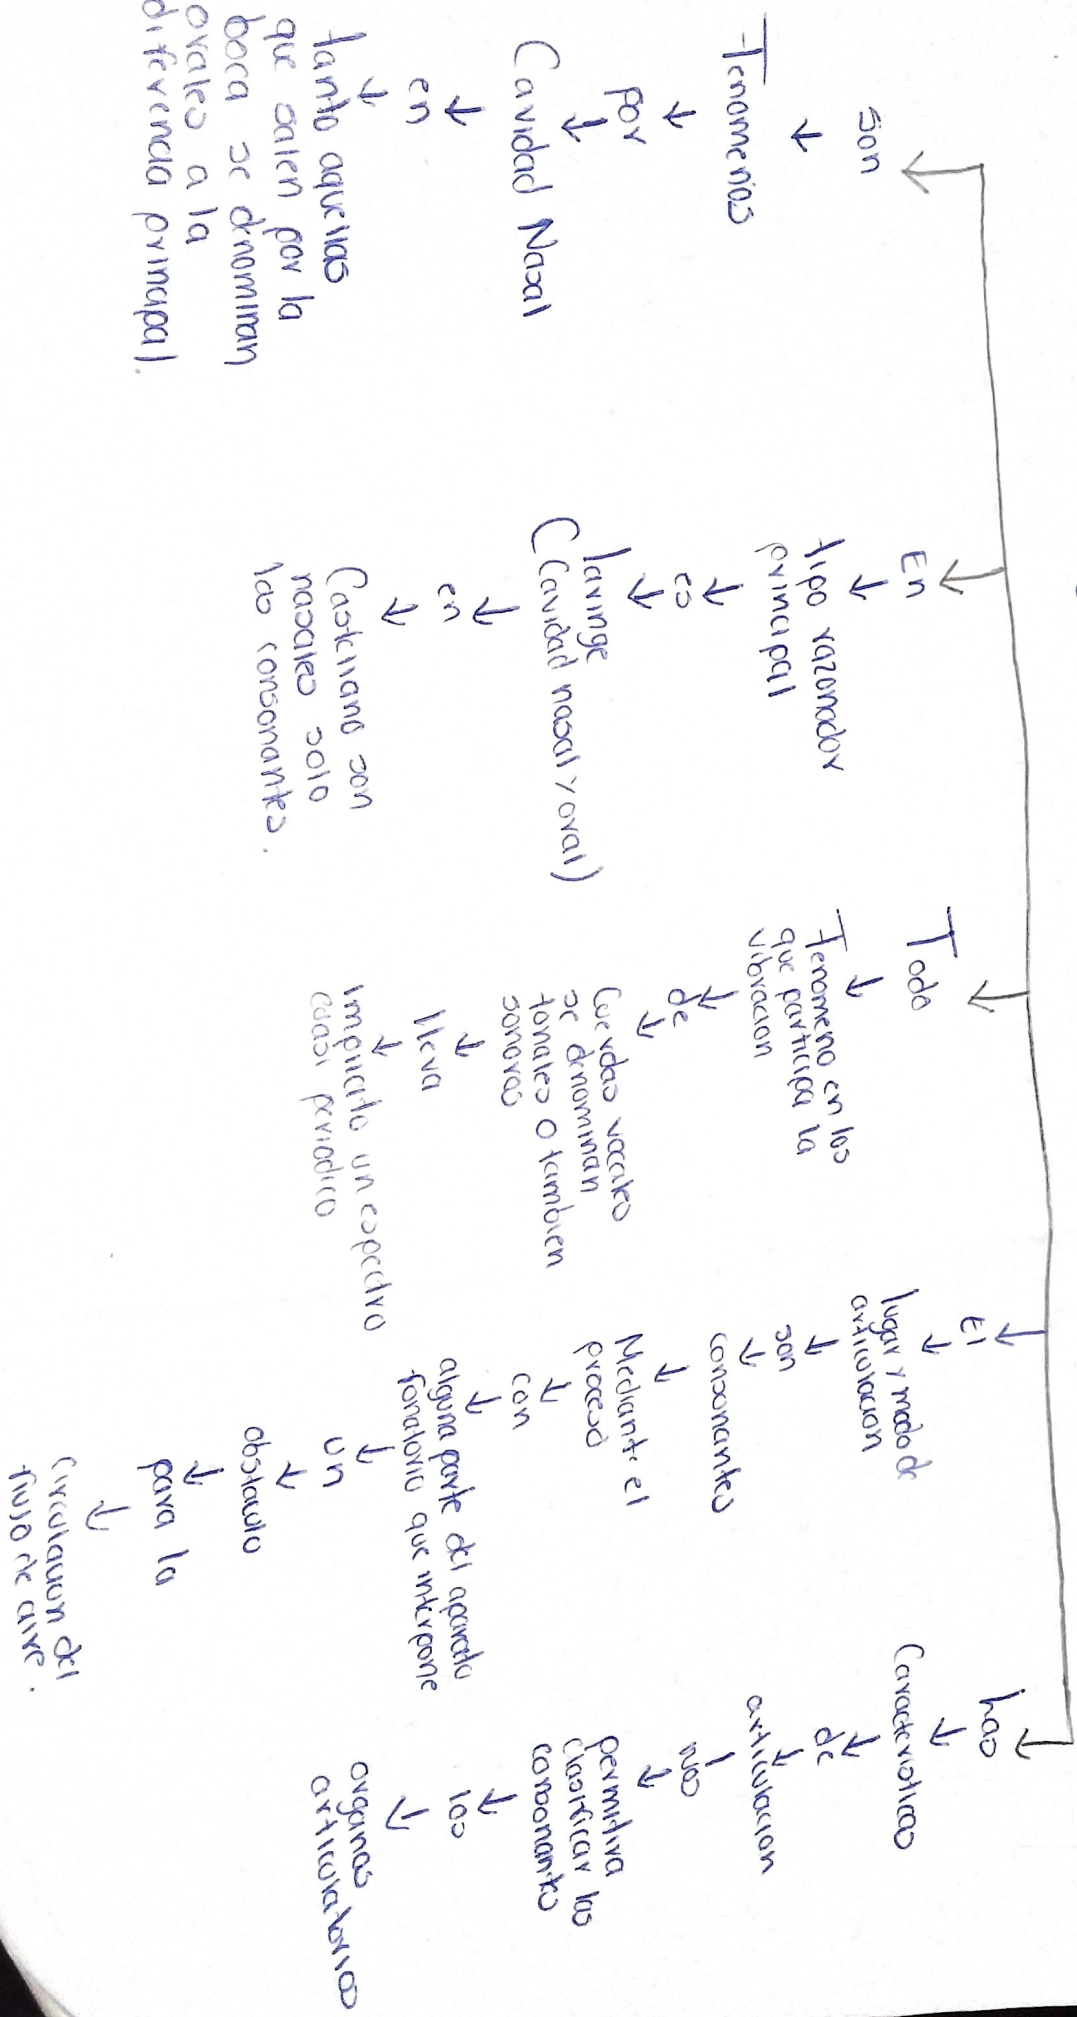 son
↓
Fenomenos
↓
por
↓
Cavidad Nasal
↓
en
↓
tanto aquellas
que salen por la
boca se denominan
orales a la
diferencia principal.
En
↓
tipo razonador
principal
↓
es
↓
laringe
(Cavidad nasal y oral)
↓
en
↓
Castellano son
nasales solo
las consonantes.
Todo
↓
Fenomeno en los
que participa la
vibracion
↓
de
↓
Cuerdas vocales
se denominan
tonales o tambien
sonoros
↓
lleva
↓
Implicito un espectro
cuasi periodico
El
↓
lugar y modo de
articulacion
↓
son
↓
consonantes
↓
Mediante el
proceso
↓
con
↓
alguna parte del aparato
fonatorio que interpone
↓
un
↓
obstaculo
↓
para la
↓
Circulacion del
flujo de aire.
las
↓
Caracteristicas
↓
de
↓
articulacion
↓
permitira
clasificar las
consonantes
↓
los
↓
organos
articulatorios